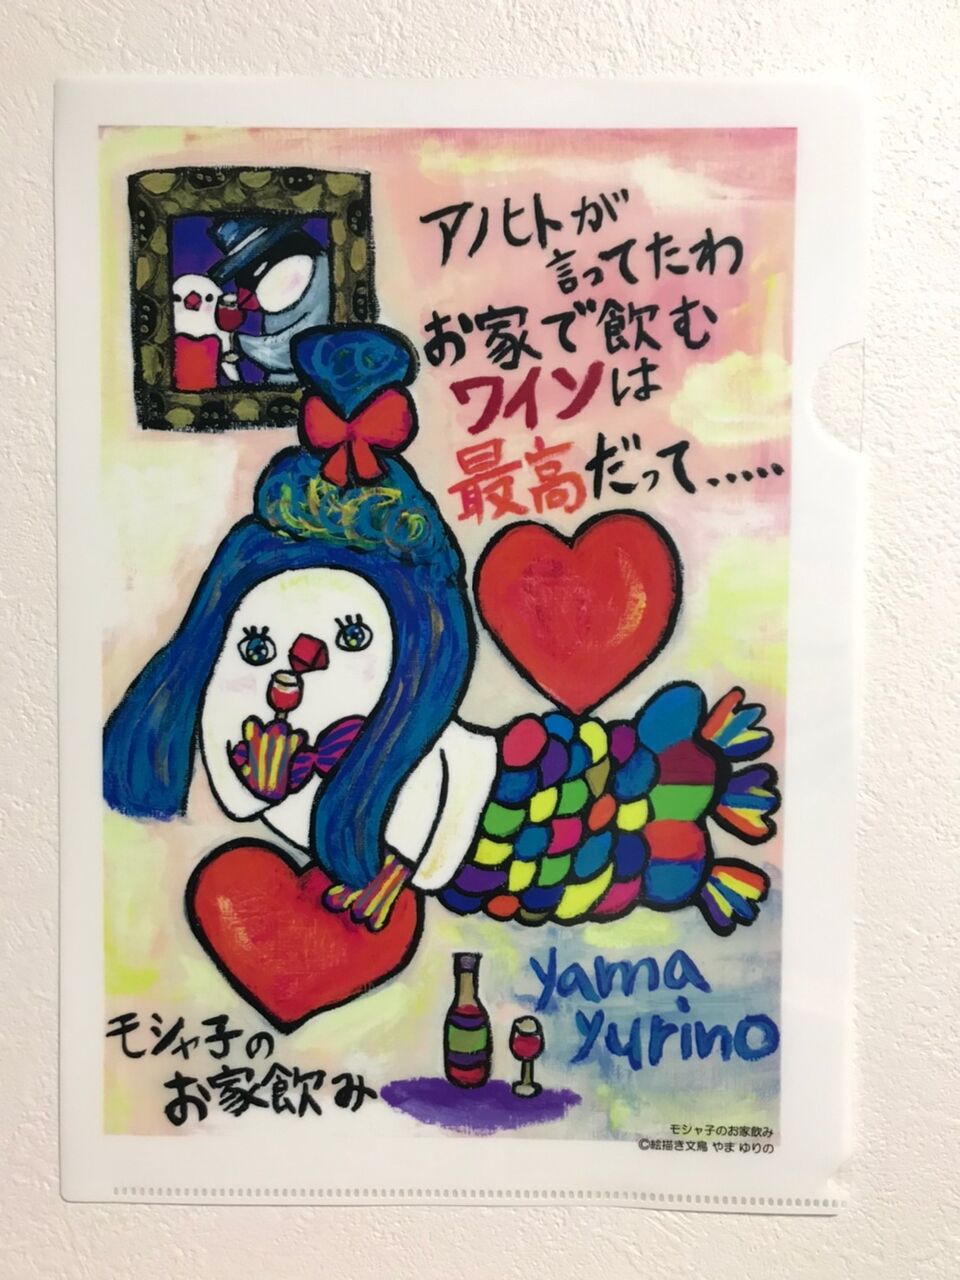 アノヒトが
言ってたわ
お家で飲む
ワインは
最高だって.....
yama
yurino
モシャ子の
お家飲み
モシャ子のお家飲み
©絵描き文鳥 やま ゆりの